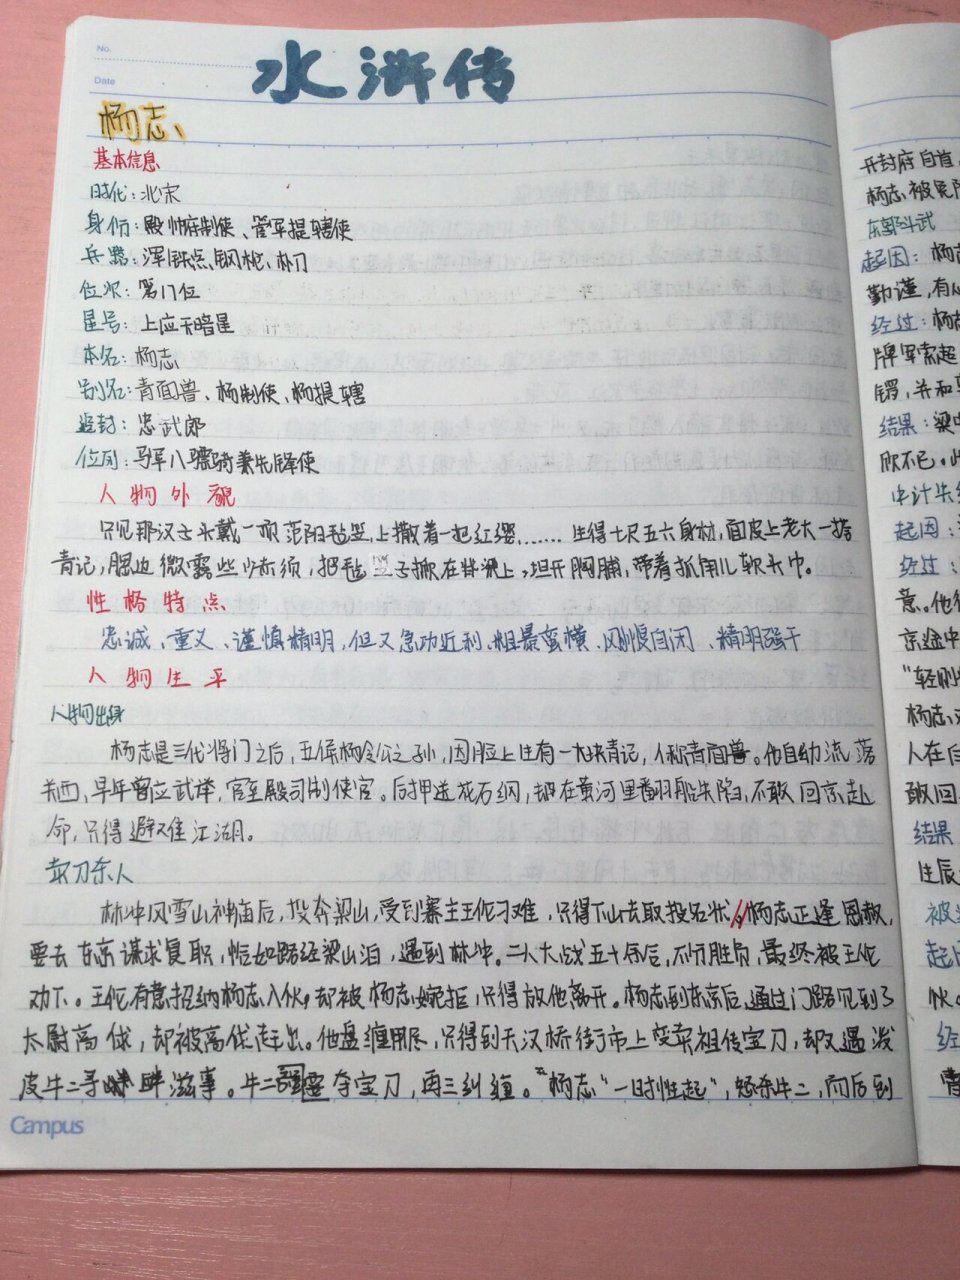 No.
Date
水浒传
杨志
基本信息
时代：北宋
身份：殿帅府制使、管军提辖使
兵器：浑铁点钢枪、朴刀
位次：第17位
星号：上应天暗星
本名：杨志
别名：青面兽、杨制使、杨提辖
追封：忠武郎
位列：马军八骠骑兼先锋使
人物外貌
只见那汉子头戴一顶范阳毡笠，上撒着一把红缨，……生得七尺五六身材，面皮上老大一搭
青记，腮边微露些少赤须，把毡笠子掀在脊梁上，坦开胸脯，带着抓角儿软头巾。
性格特点
忠诚、重义、谨慎精明，但又急功近利、粗暴蛮横、刚愎自闭、精明强干
人物生平
人物出身
杨志是三代将门之后，五侯杨令公之孙，因脸上生有一大块青记，人称青面兽。他自幼流落
关西，早年曾应武举，官至殿司制使官。后押送花石纲，却在黄河里翻船失陷，不敢回京赴
命，只得避难江湖。
卖刀杀人
林冲风雪山神庙后，投奔梁山，受到寨主王伦刁难，只得下山去取投名状，杨志正逢恩赦，
要去东京谋求复职，恰如路经梁山泊，遇到林冲。二人大战五十余合，不分胜负，最终被王伦
劝下。王伦有意招纳杨志入伙，却被杨志婉拒，只得放他离开。杨志到东京后，通过门路见到了
太尉高俅，却被高俅赶出。他盘缠用尽，只得到天汉桥街市上变卖祖传宝刀，却又遇泼
皮牛二寻衅滋事。牛二夺宝刀，再三纠缠。杨志“一时性起”，怒杀牛二，而后到
Campus
开封府自首。
杨志被免
东郭斗武
起因：杨志
勤谨，有心
经过：杨志
牌军索超
结果：梁中
欣不已。
中计失
起因：
经过：
意。他
京途中
“轻则
杨志
人在后
敢回
结果
生辰
起因
伙
经
曹